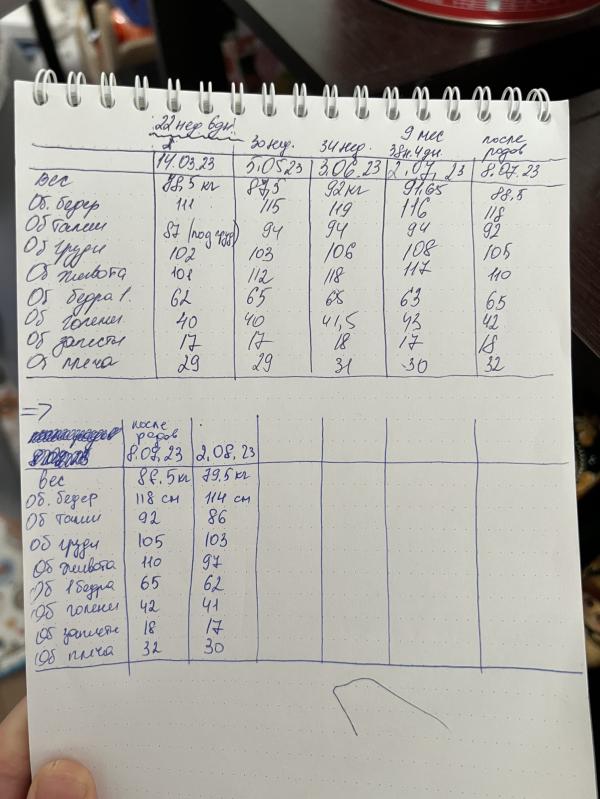 22 нед 6дн
9 мес
30 нед. 34 нед. 38н.4дн. после родов
14.03.23 5.05.23 3.06.23 2.07.23 8.07.23
Вес 88.5 кг 87,5 92 кг 91,65 88,5
Об. бедер 111 115 119 116 118
Об талии 87 (под груд) 94 94 94 92
Об груди 102 103 106 108 105
Об живота 108 112 118 117 110
Об бедра 1. 62 65 65 63 65
Об голени 40 40 41,5 43 42
Об запясть 17 17 18 17 18
Об плеча 29 29 31 30 32
=>
после родов
8.07.23 2.08.23
Вес 88.5 кг 79.5 кг
Об. бедер 118 см 114 см
Об талии 92 86
Об груди 105 103
Об живота 110 97
Об 1 бедра 65 62
Об голени 42 41
Об запясть 18 17
Об плеча 32 30